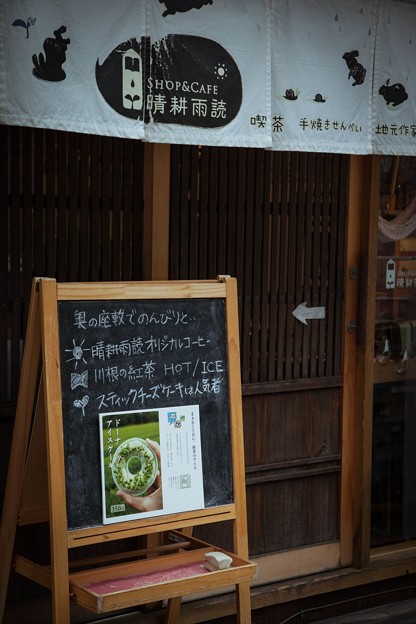 SHOP&CAFE
晴耕雨読
喫茶 手焼きせんべい 地元作家
奥の座敷でのんびりと…
晴耕雨読オリジナルコーヒー
川根の紅茶 HOT/ICE
スティックチーズケーキは人気者
ドーナツ
アイスケーキ
350